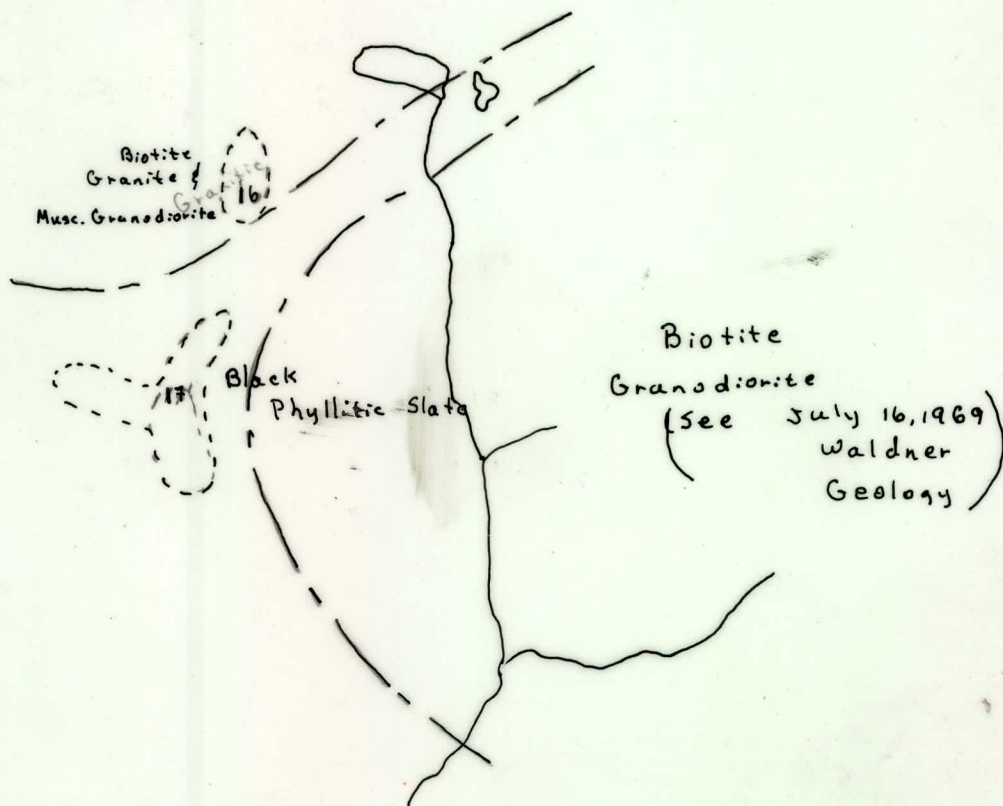 Biotite
Granite &
Granitic
Musc. Granodiorite
16
17
Black
Phyllitic Slate
Biotite
Granodiorite
(See July 16, 1969
Waldner
Geology)